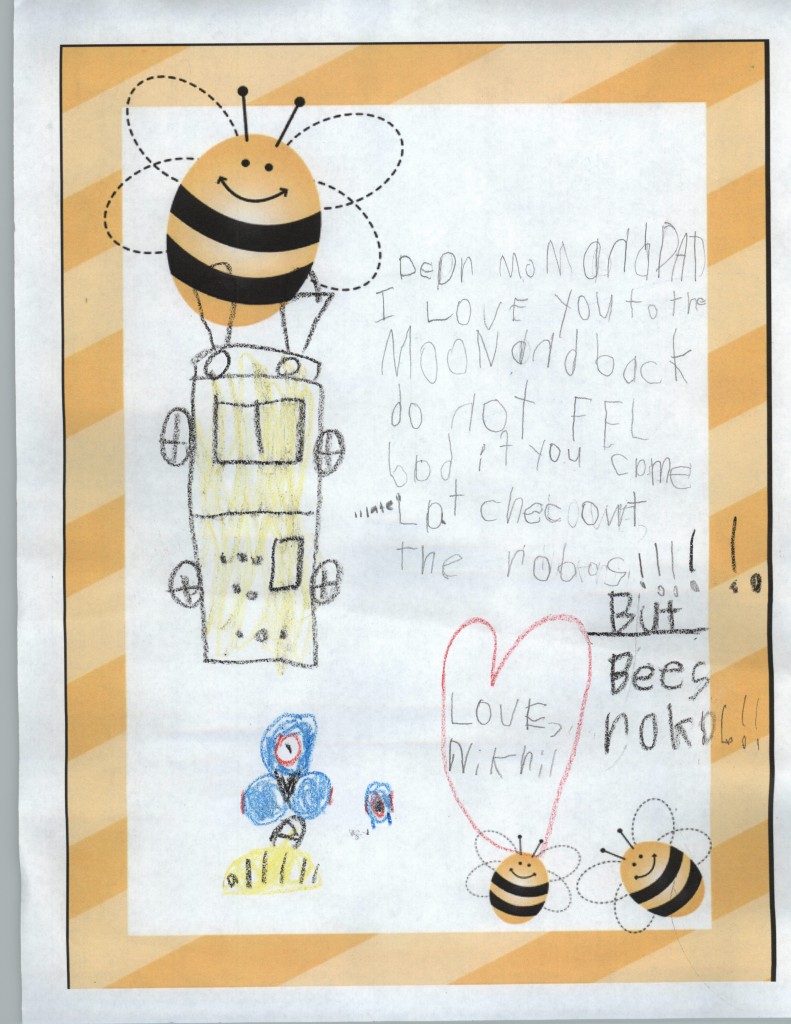 DeDr MoM and DAD
I LOVE YOU to the
MOON and back
do not FEL
bad if you come
Lat checoowt
"late"
the robots!!!! !..
But
Bees
rok
LOVE,
Nikhil